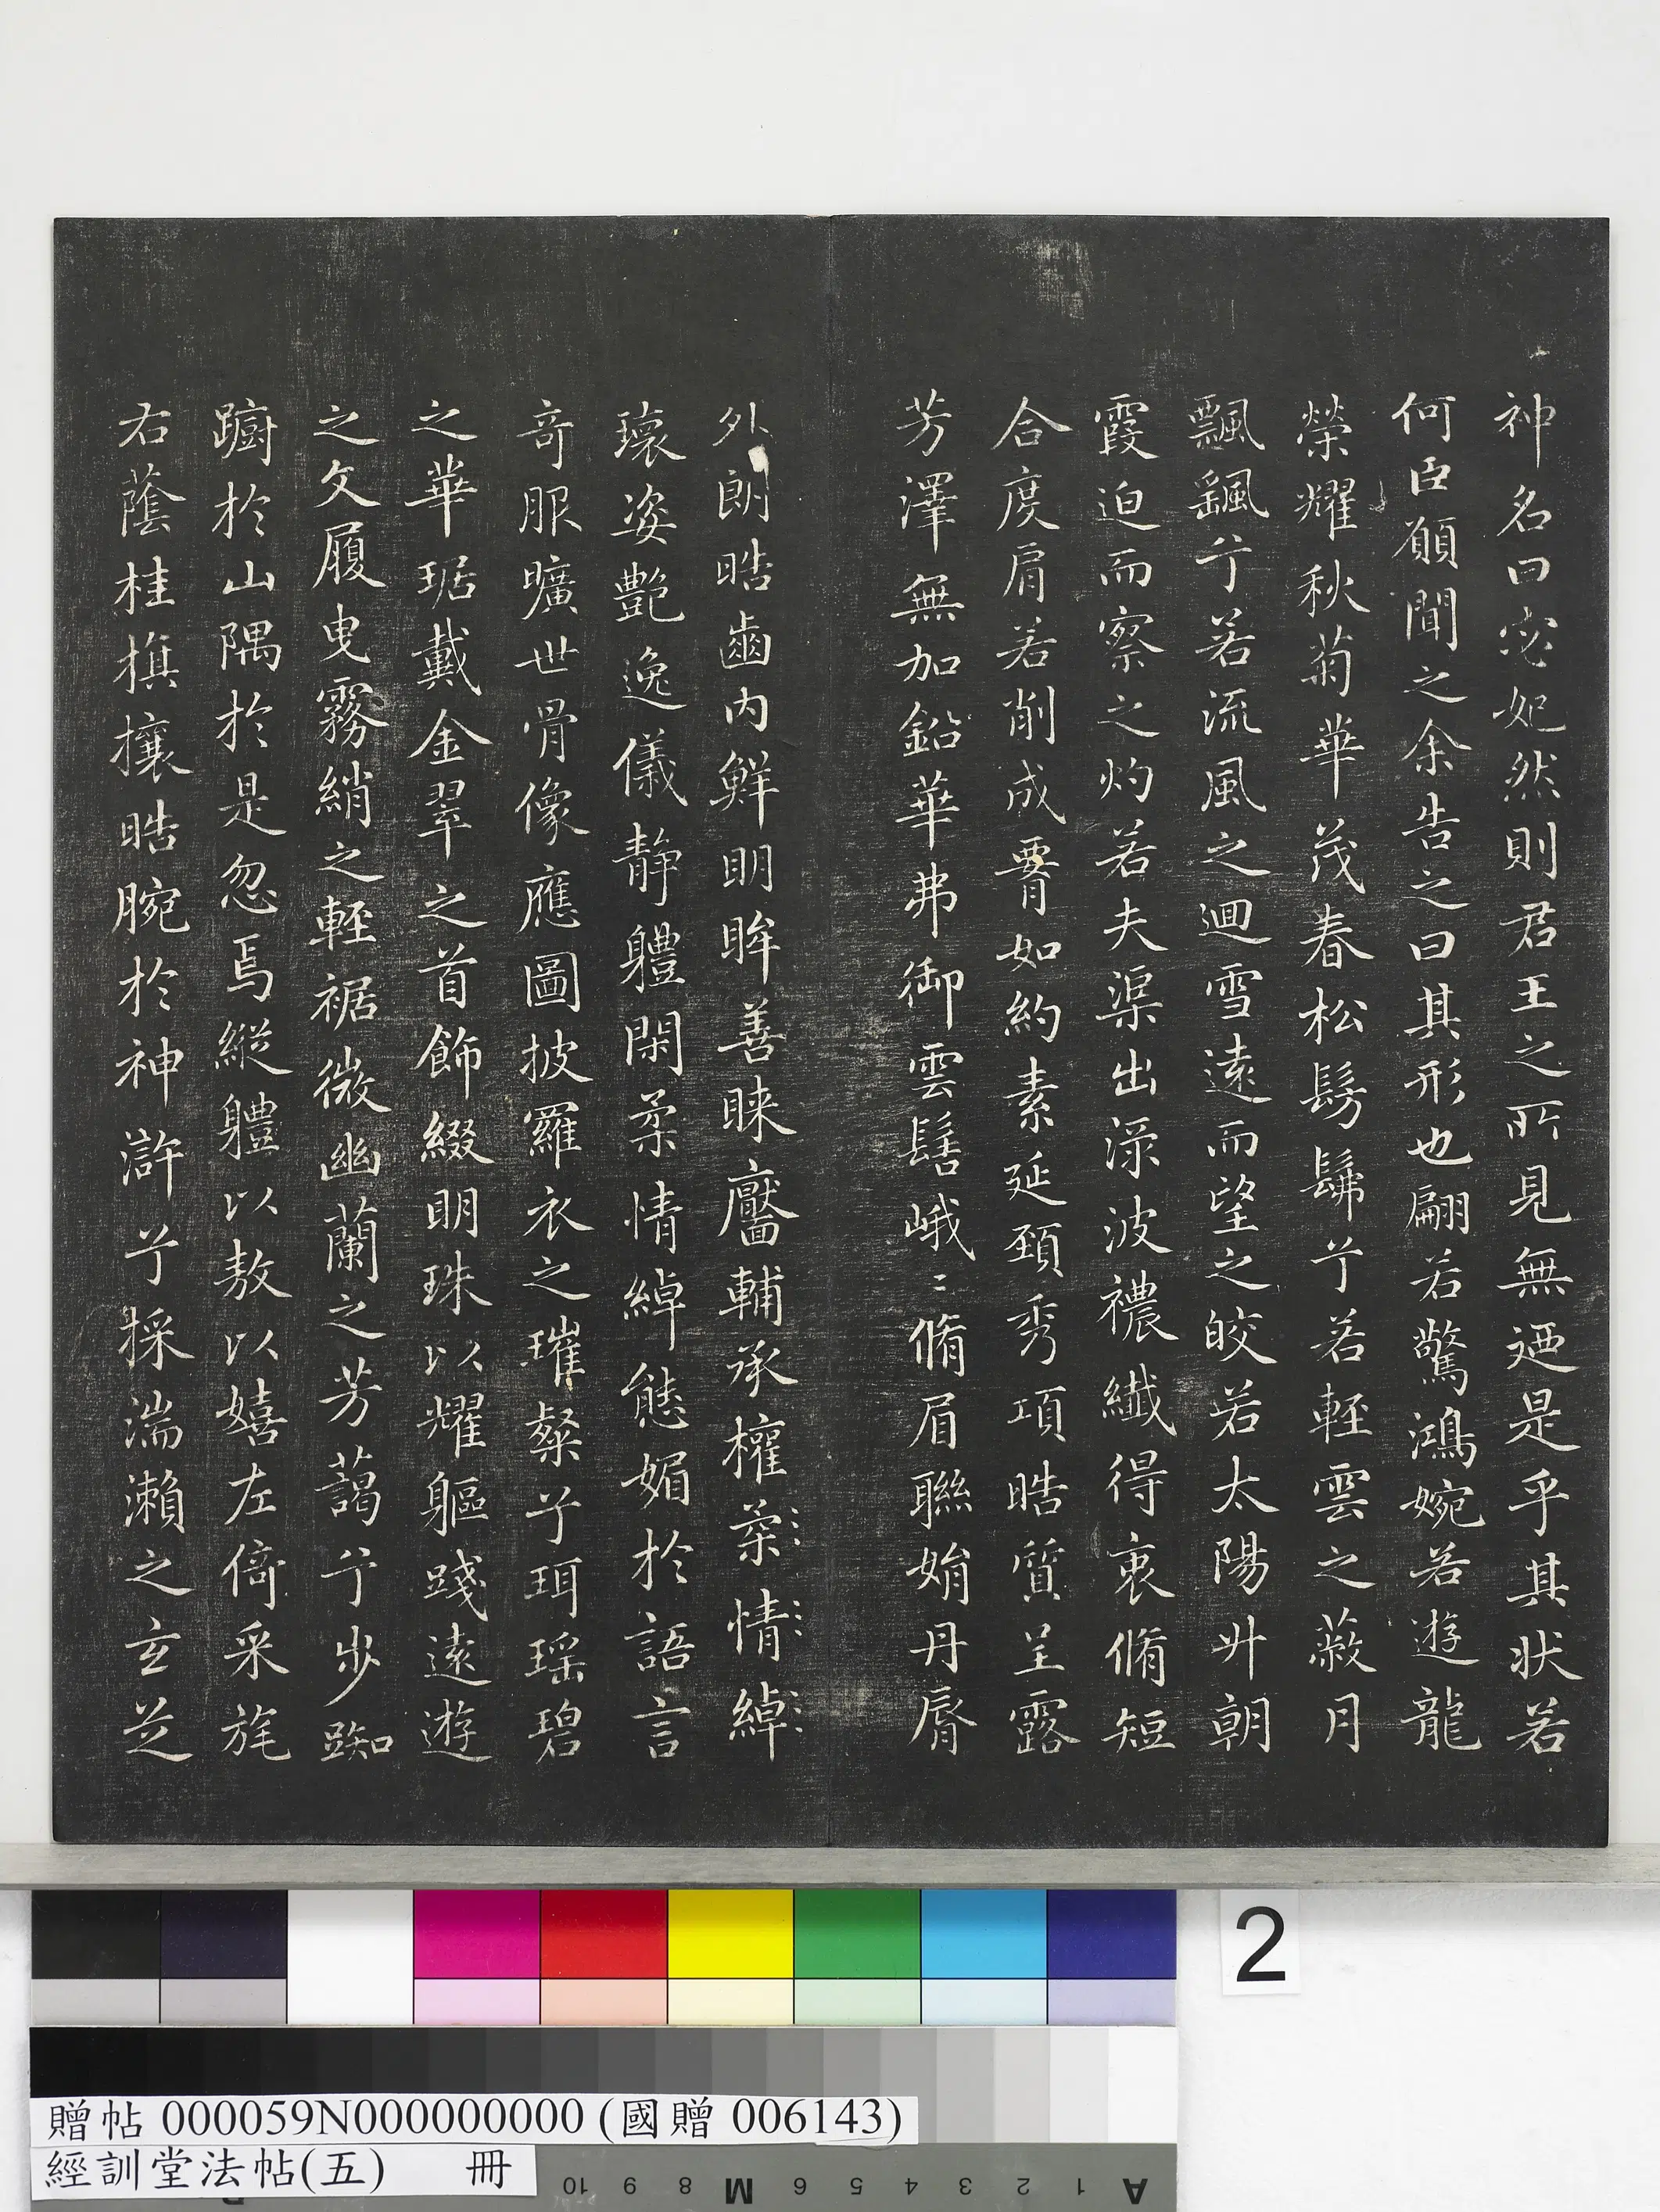 神名曰宓妃然則君王之所見無迺是乎其狀若
何臣願聞之余告之曰其形也翩若驚鴻婉若遊龍
榮耀秋菊華茂春松髣髴兮若輕雲之蔽月
飄颻兮若流風之迴雪遠而望之皎若太陽升朝
霞迫而察之灼若夫渠出淥波襛纖得衷脩短
合度肩若削成𦝫如約素延頸秀項晧質呈露
芳澤無加鉛華弗御雲髻峨〻脩眉聯娟丹脣
外朗晧齒內鮮明眸善睞靨輔承權柔情綽
瓌姿艷逸儀靜軆閑柔情綽態媚於語言
奇服曠世骨像應圖披羅衣之璀粲兮珥瑤碧
之華琚戴金翠之首飾綴明珠以耀軀踐遠遊
之文履曳霧綃之輕裾微幽蘭之芳藹兮步踟
躕於山隅於是忽焉縱軆以敖以嬉左倚采旄
右蔭桂旗攘晧腕於神滸兮採湍瀨之玄芝
2
贈帖 000059N000000000 (國贈 006143)
經訓堂法帖(五) 冊
10 9 8 M 6 5 4 3 2 1 A